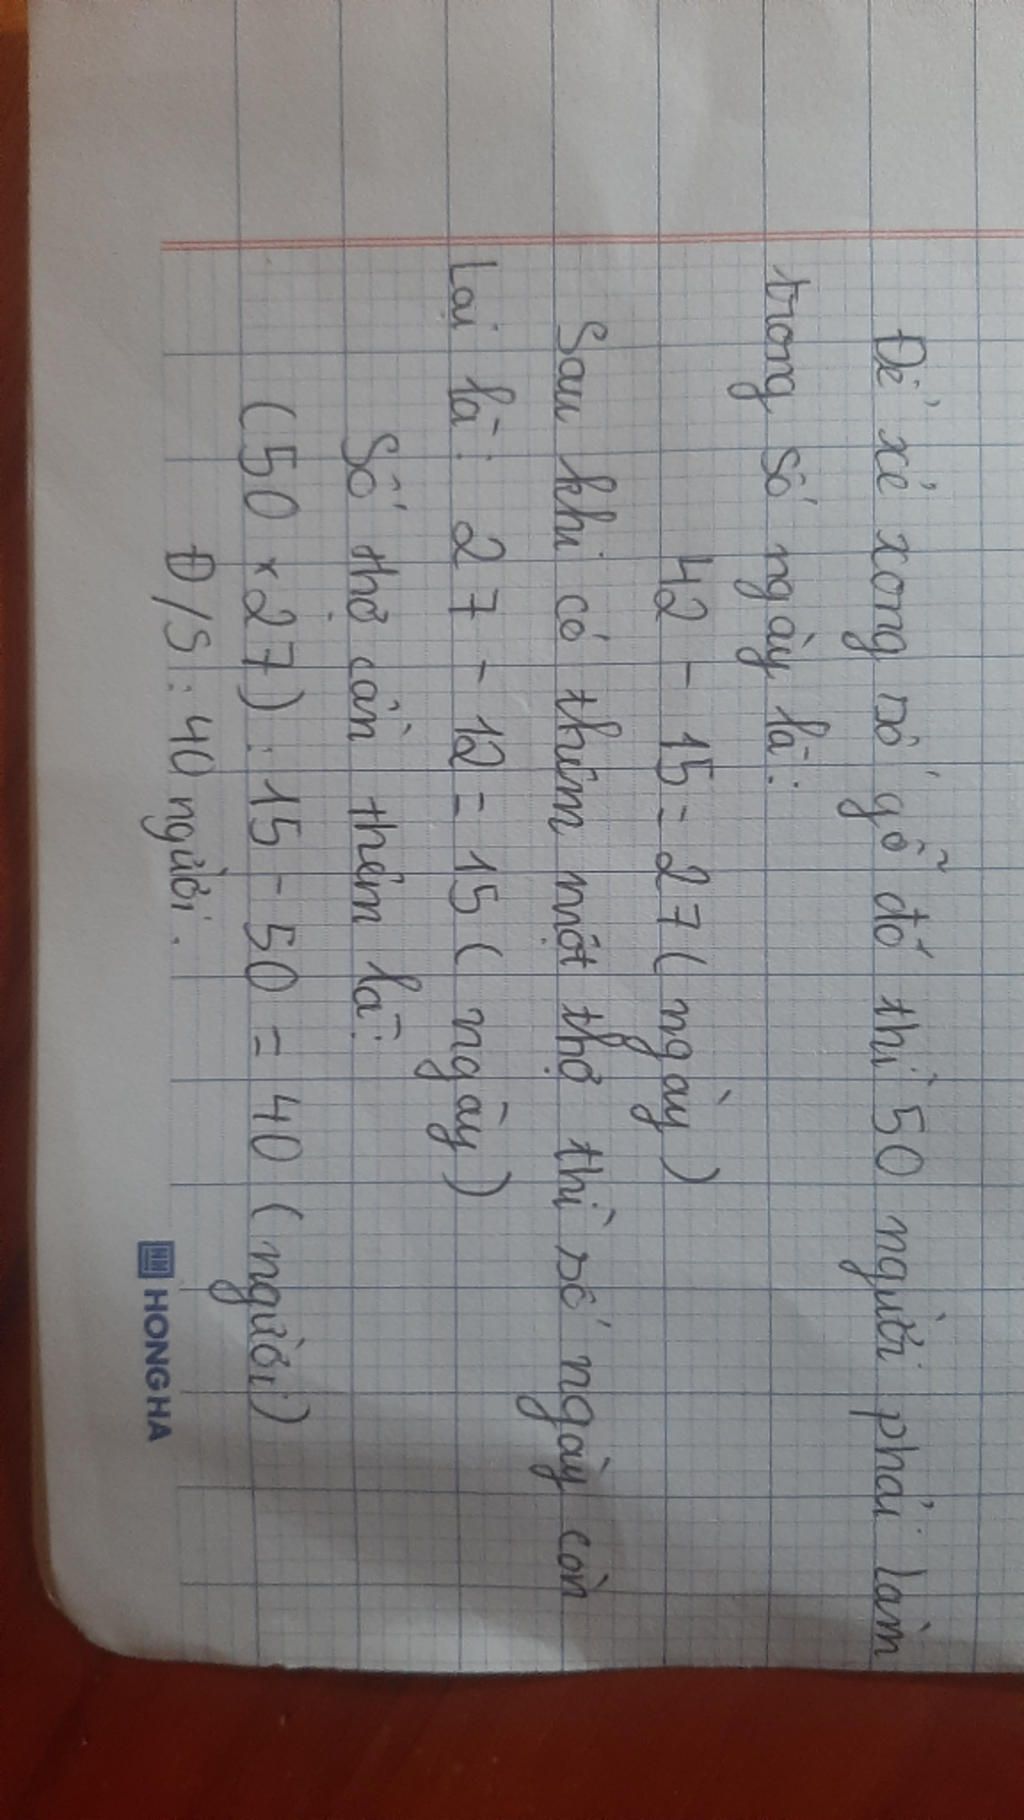 Để xẻ xong số gỗ đó thì 50 người phải làm
trong số ngày là:
42 - 15 = 27 (ngày)
Sau khi có thêm một thợ thì số ngày còn
lại là: 27 - 12 = 15 (ngày)
Số thợ cần thêm là:
(50 x 27) : 15 - 50 = 40 (người)
Đ/S: 40 người.
HONG HA